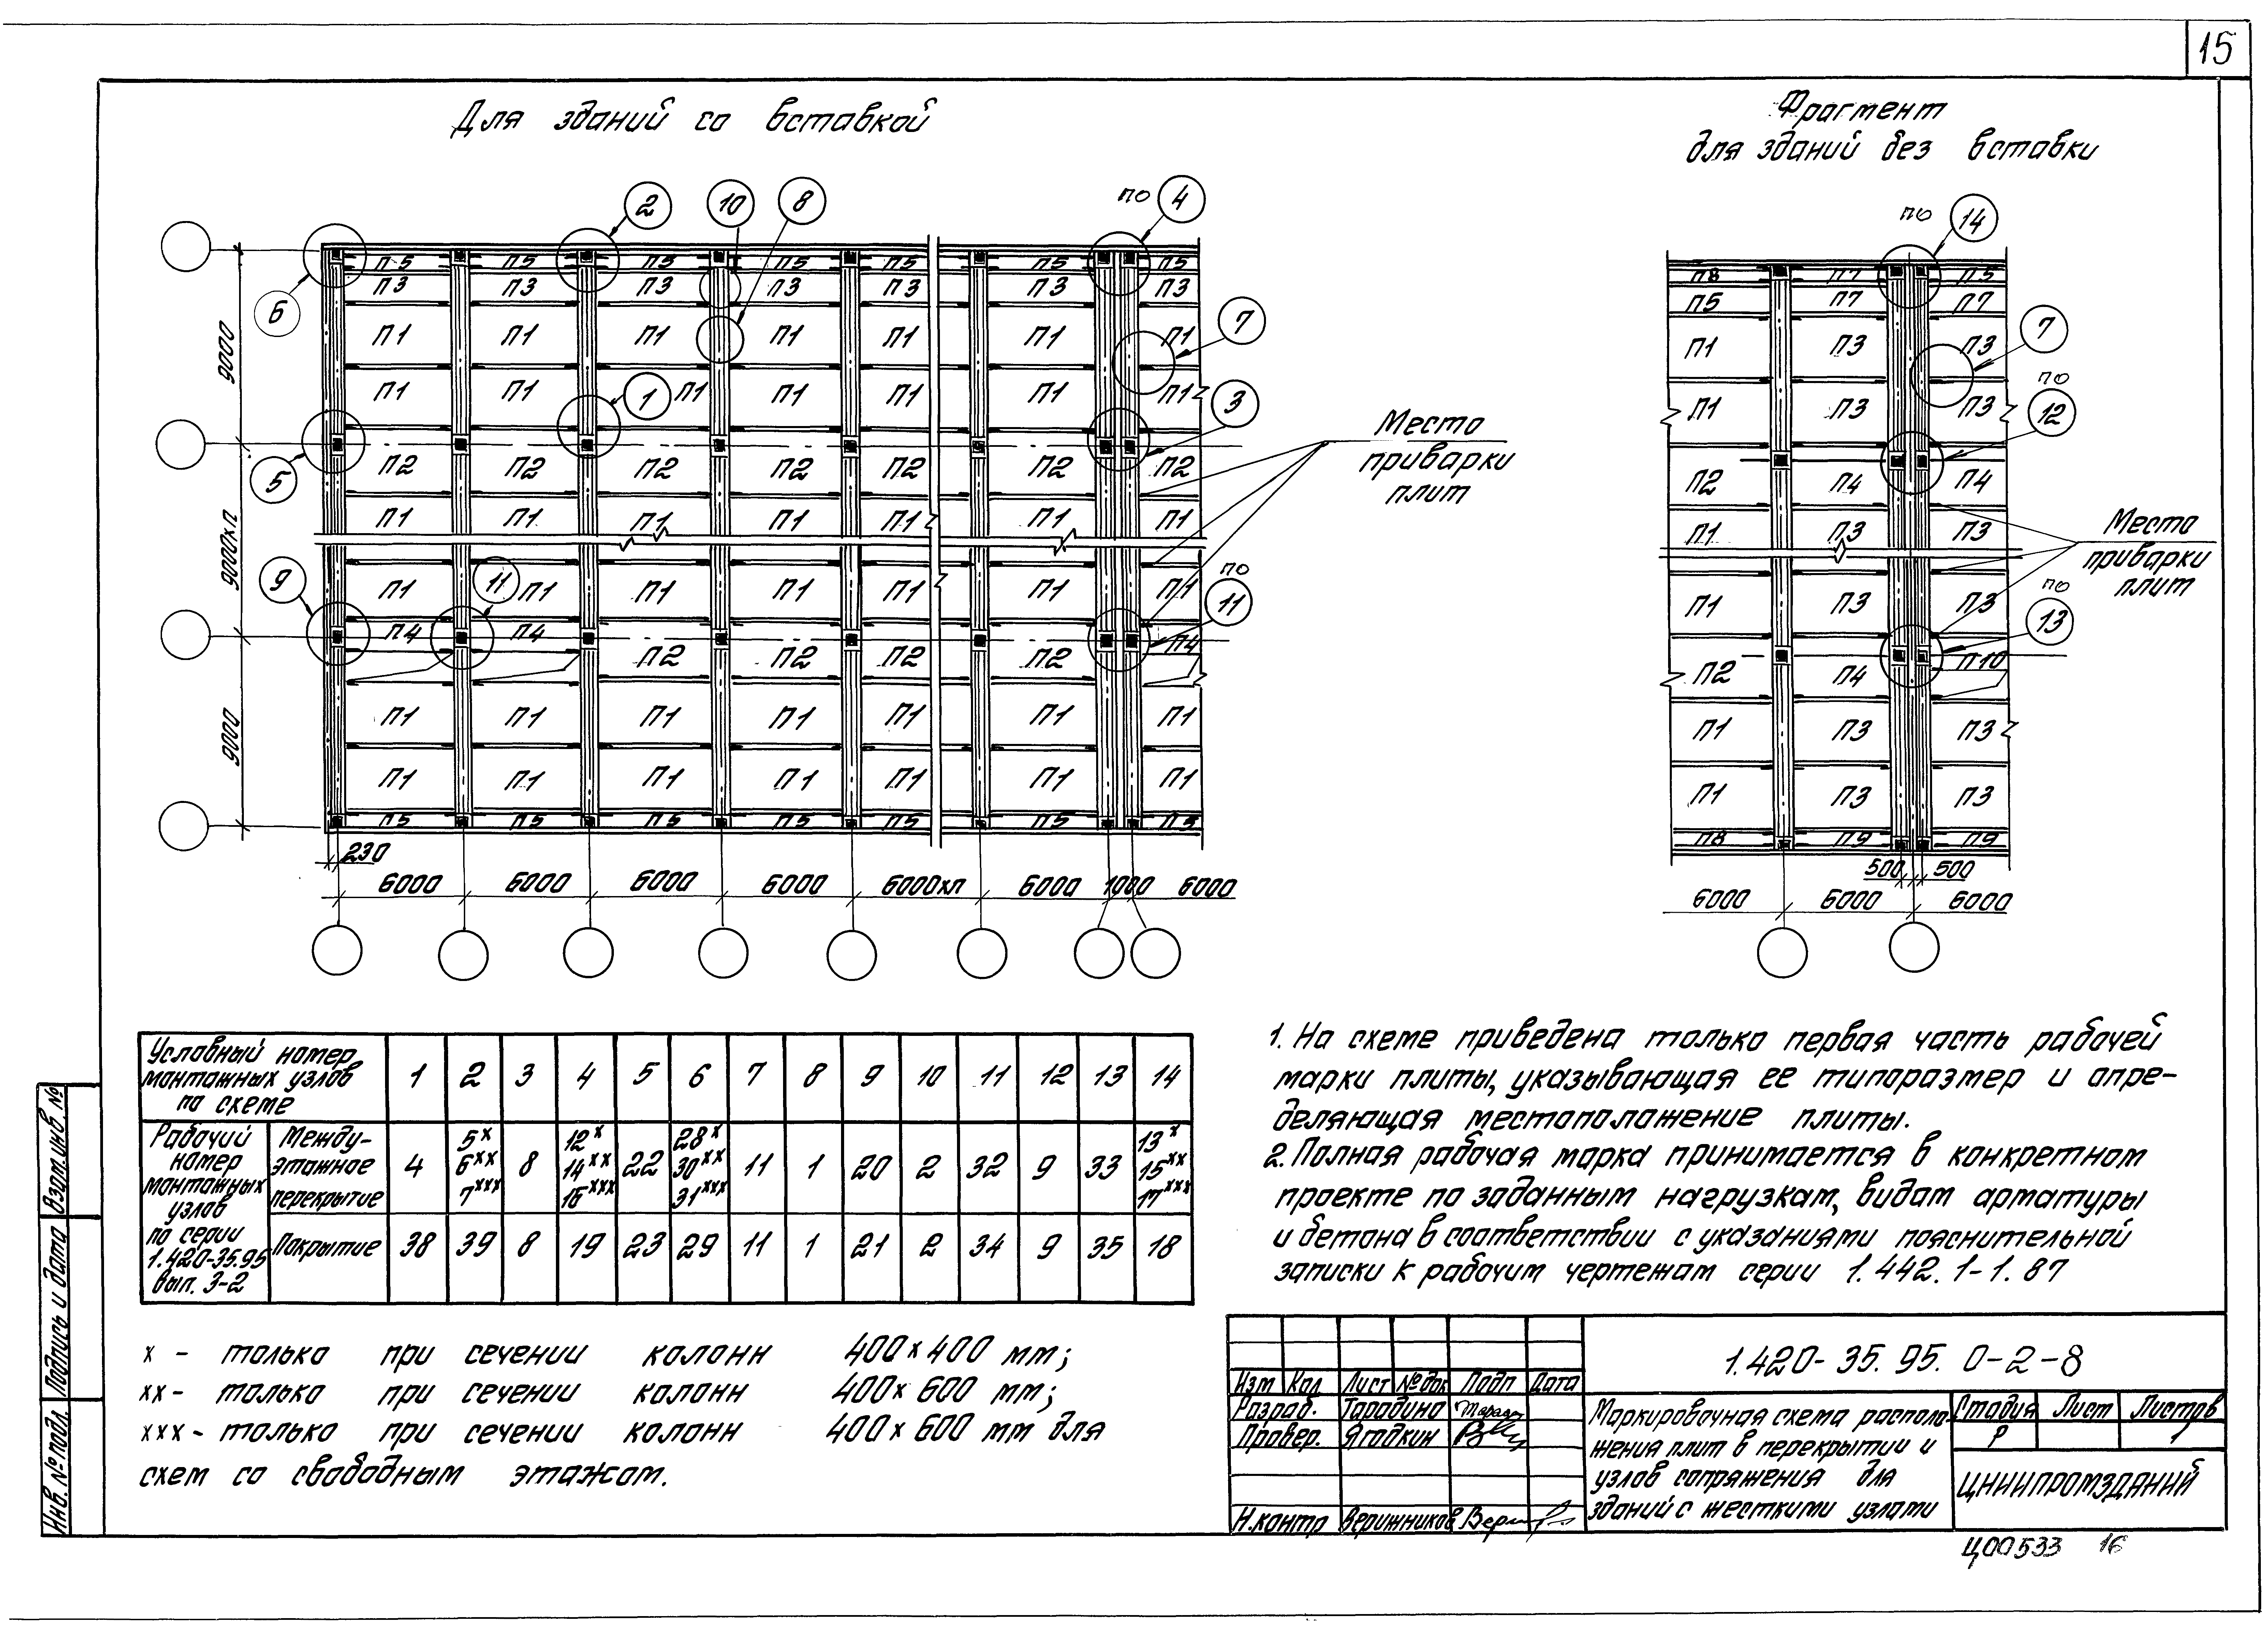 15
Для зданий со вставкой
Фрагмент
для зданий без вставки
2 10 8 по 4
6
9000
П5 П5 П5 П5 П5 П5 П5
П3 П3 П3 П3 П3 П3 П3
П1 П1 П1 П1 П1 П1 П1
7
П1 П1 1 П1 П1 П1 П1 П1
3
5
П2 П2 П2 П2 П2 П2 П2
Место
приварки
плит
9000хп
П1 П1 П1 П1 П1 П1 П1
9 11
П1 П1 П1 П1 П1 П1 П1
по
11
П4 П4 П2 П2 П2 П2 П4
9000
П1 П1 П1 П1 П1 П1 П1
П1 П1 П1 П1 П1 П1 П1
П5 П5 П5 П5 П5 П5 П5
230
6000 6000 6000 6000 6000хп 6000 1000 6000
по 14
П8 П7 П5
П5 П7 П7
7
П1 П3 П3
по
12
П1 П3 П3
П2 П4 П4
П1 П3 П3
Место
приварки
плит
П1 П3 П3
по
13
П2 П4 П10
П1 П3 П3
П1 П3 П3
П8 П9 П9
500 500
6000 6000 6000
Условный номер
монтажных узлов
по схеме
1 2 3 4 5 6 7 8 9 10 11 12 13 14
Рабочий
номер
монтажных
узлов
по серии
1.420-35.95
вып. 3-2
Между-
этажное
перекрытие
4 5х 6хх 7ххх 8 12х 14хх 16ххх 22 28х 30хх 31ххх 11 1 20 2 32 9 33 13х 15хх 17ххх
Покрытие 38 39 8 19 23 29 11 1 21 2 34 9 35 18
х - только при сечении колонн 400х400 мм;
хх - только при сечении колонн 400х600 мм;
ххх - только при сечении колонн 400х600 мм для
схем со свободным этажом.
1. На схеме приведена только первая часть рабочей
марки плиты, указывающая ее типоразмер и опре-
деляющая местоположение плиты.
2. Полная рабочая марка принимается в конкретном
проекте по заданным нагрузкам, видам арматуры
и бетона в соответствии с указаниями пояснительной
записки к рабочим чертежам серии 1.442.1-1.87
1.420-35.95.0-2-8
Изм Кол Лист № док Подп Дата
Разраб. Тарадина
Провер. Ягодкин
Н.контр Верижников
Маркировочная схема располо
жения плит в перекрытии и
узлов сопряжения для
зданий с жесткими узлами
Стадия Лист Листов
Р 1
ЦНИИПРОМЗДАНИЙ
Ц00533 16
Взам. инв. №
Подпись и дата
Инв. № подл.